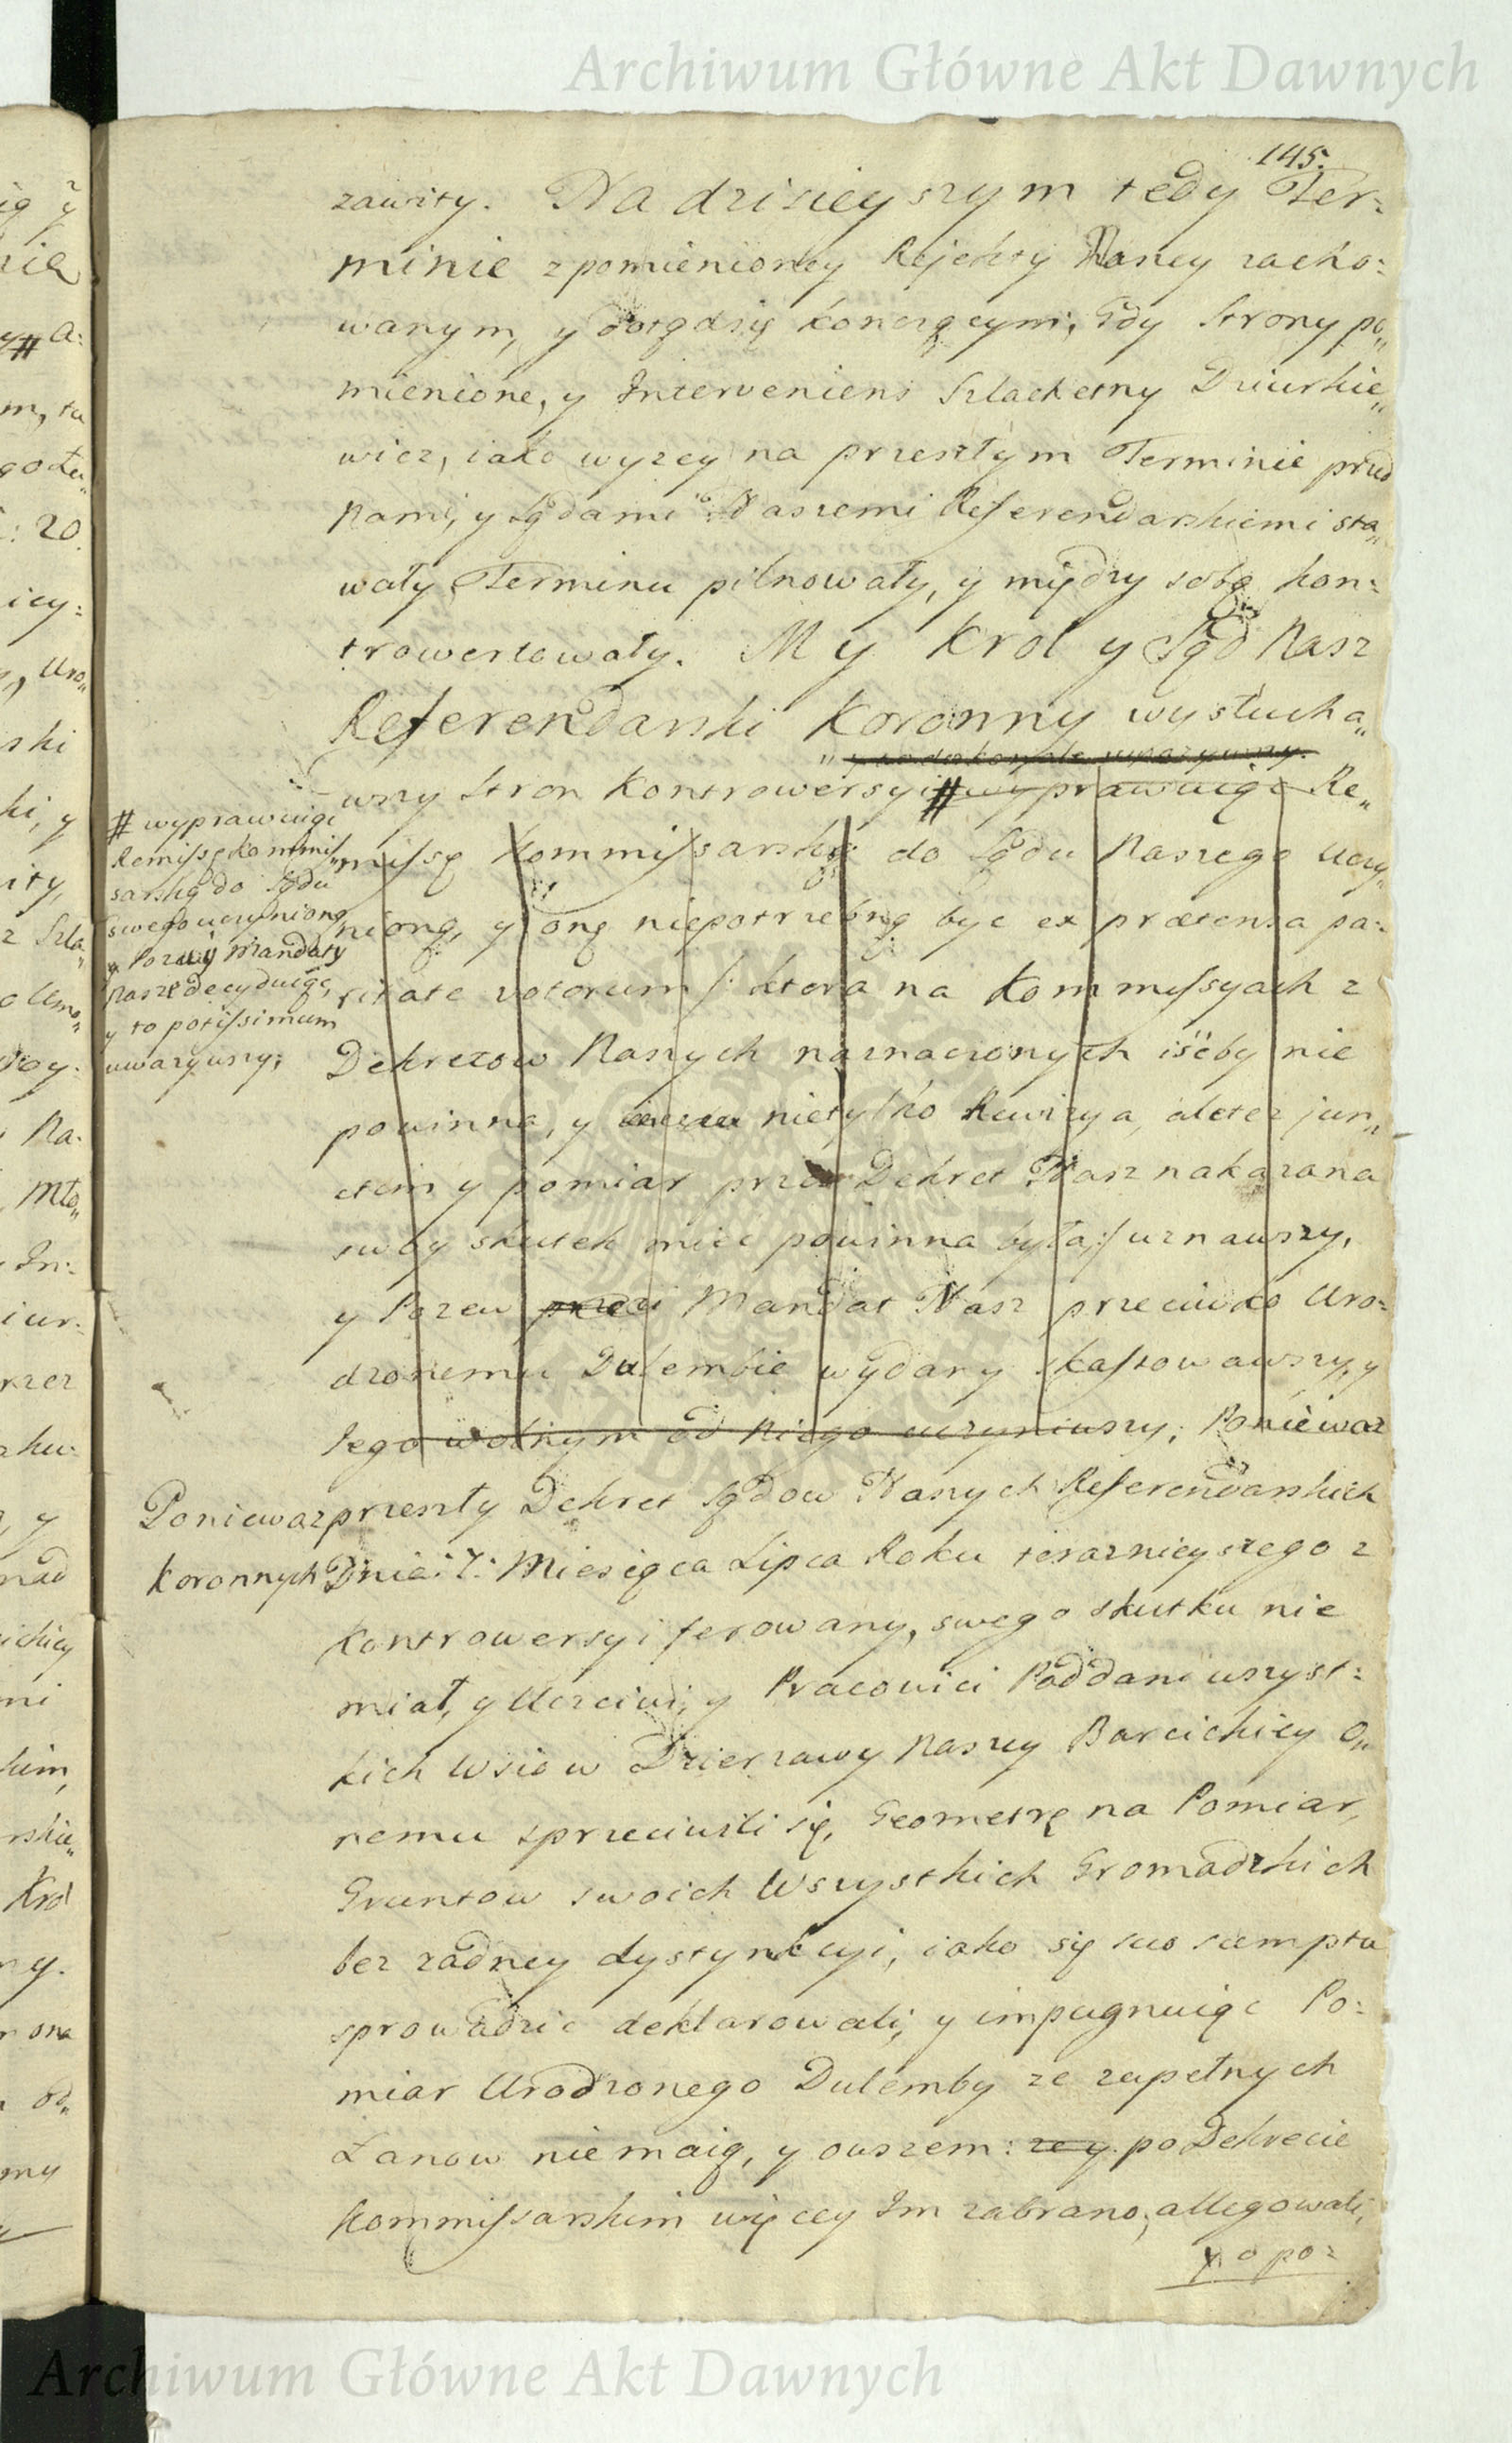 Archiwum Główne Akt Dawnych
145.
zawity. Na dzisieyszym tedy Ter:
minie z pomienioney Rejekty Naszey zacho:
wanym, y dotąd się kończącym, Gdy Strony po„
mienione, y Interveniens Szlachetny Dziurkie„
wicz, iako wyzey na przeszłym Terminie przed
Nami, y Sądami Naszemi Referendarskiemi sta„
wały Terminu pilnowały, y między sobą kon:
trowertowały. My Krol y Sąd Nasz
Referendarski Koronny wysłucha„
wszy Stron Kontrowersyi # wyprawuiąc Re„
missę Kommissarską do Sądu Naszego uczy„
nioną, y oną niepotrzebną bydz ex prætensa pa:
ritate votorum /: ktora na Kommissyach z
Dekretow Naszych naznaczonych iśćby nie
powinna, y nietylko Rewizya, aletez jun„
ctim y pomiar przez Dekret Nasz nakazana
swoy skutek mieć powinna była :/ uznawszy,
y Pozew Mandat Nasz przeciwko Uro:
dzonemu Dulembie wydany skassowawszy, y
Iego wolnym od Niego uczyniwszy; Poniewaz
# wyprawuiąc
Remissę Kommis„
sarską do Sądu
swego uczynioną
y Pozwy Mandaty
Nasze decyduiąc,
y to potissimum
uwazywszy;
Poniewaz przeszły Dekret Sądow Naszych Referendarskich
Koronnych Dnia :7: Miesiąca Lipca Roku teraznieyszego z
Kontrowersyi ferowany, swego skutku nie
miał, y Uczciwi, y Pracowici Poddani wszyst:
kich Wsiow Dzierzawy Naszey Barcickiey O„
nemu sprzeciwili się, Geometrę na Pomiar,
Gruntow swoich Wszystkich Gromadzkich
bez zadney dystynkcyi, iako się suo sumptu
sprowadzic deklarowali, y impugnuiąc Po:
miar Urodzonego Dulemby ze zupełnych
Łanow nie maią, y owszem: zey po Dekrecie
Kommissarskim więcey Im zabrano, allegowali,
y o po:
Archiwum Główne Akt Dawnych